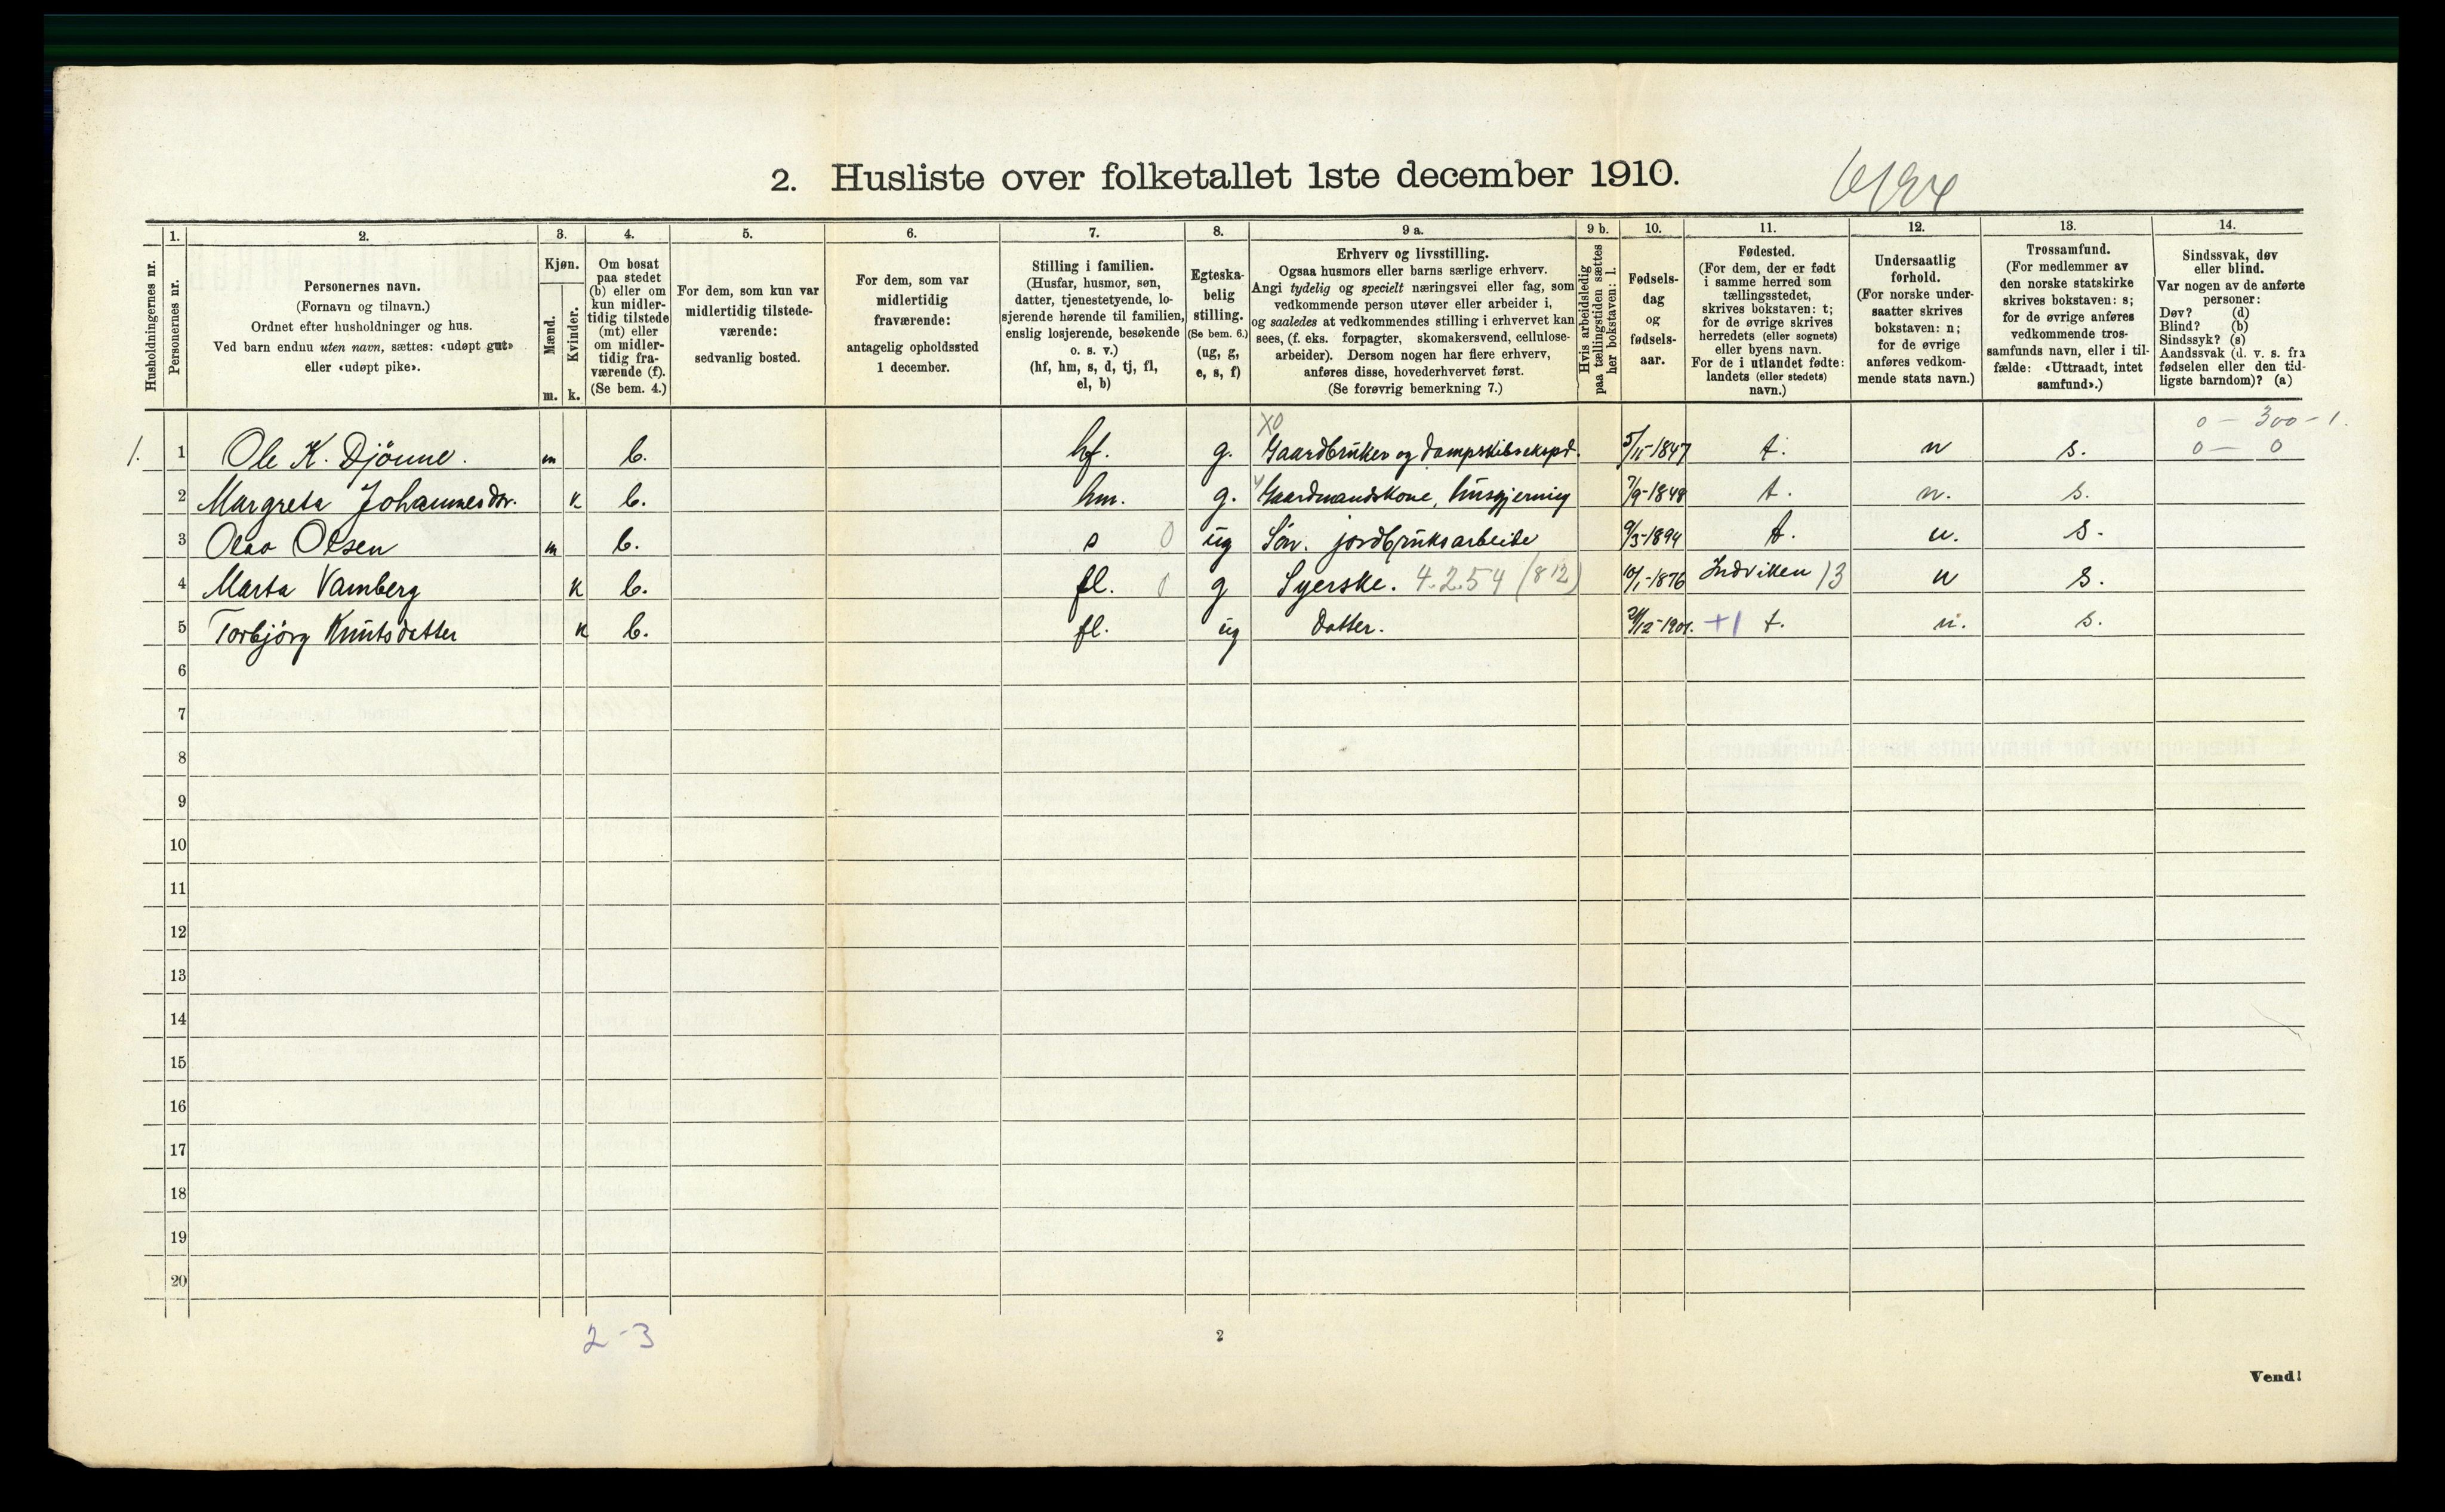 2. Husliste over folketallet 1ste december 1910.
Husholdningernes nr.
1.
Personernes nr.
2.
Personernes navn.
(Fornavn og tilnavn.)
Ordnet efter husholdninger og hus.
Ved barn endnu uten navn, sættes: «udøpt gut»
eller «udøpt pike».
3.
Kjøn.
Mænd.
Kvinder.
m. k.
4.
Om bosat
paa stedet
(b) eller om
kun midler-
tidig tilstede
(mt) eller
om midler-
tidig fra-
værende (f).
(Se bem. 4.)
5.
For dem, som kun var
midlertidig tilstede-
værende:
sedvanlig bosted.
6.
For dem, som var
midlertidig
fraværende:
antagelig opholdssted
1 december.
7.
Stilling i familien.
(Husfar, husmor, søn,
datter, tjenestetyende, lo-
sjerende hørende til familien,
enslig losjerende, besøkende
o. s. v.)
(hf, hm, s, d, tj, fl,
el, b)
8.
Egteska-
belig
stilling.
(Se bem. 6.)
(ug, g,
e, s, f)
9 a.
Erhverv og livsstilling.
Ogsaa husmors eller barns særlige erhverv.
Angi tydelig og specielt næringsvei eller fag, som
vedkommende person utøver eller arbeider i,
og saaledes at vedkommendes stilling i erhvervet kan
sees, (f. eks. forpagter, skomakersvend, cellulose-
arbeider). Dersom nogen har flere erhverv,
anføres disse, hovederhvervet først.
(Se forøvrig bemerkning 7.)
9 b.
Hvis arbeidsledig
paa tællingstiden sættes
her bokstaven: l.
10.
Fødsels-
dag
og
fødsels-
aar.
11.
Fødested.
(For dem, der er født
i samme herred som
tællingsstedet,
skrives bokstaven: t;
for de øvrige skrives
herredets (eller sognets)
eller byens navn.
For de i utlandet fødte:
landets (eller stedets)
navn.)
12.
Undersaatlig
forhold.
(For norske under-
saatter skrives
bokstaven: n;
for de øvrige
anføres vedkom-
mende stats navn.)
13.
Trossamfund.
(For medlemmer av
den norske statskirke
skrives bokstaven: s;
for de øvrige anføres
vedkommende tros-
samfunds navn, eller i til-
fælde: «Uttraadt, intet
samfund».)
14.
Sindssvak, døv
eller blind.
Var nogen av de anførte
personer:
Døv? (d)
Blind? (b)
Sindssyk? (s)
Aandssvak (d. v. s. fra
fødselen eller den tid-
ligste barndom)? (a)
X0 0 – 300 – 1.
1. 1 Ole K. Djönne. m b. hf. g. Gaardbruker og dampskibsekspd. 5/11-1847 t. n s. 0 – 0
2 Margreta Johannesdtr. k b. hm. g. Gaardmandskone, husgjerning 7/9-1848 t. n. s.
3 Olav Olsen m b. s 0 ug Sön. jordbruksarbeide 9/3-1894 t. n. s.
4 Marta Vamberg k b. fl. 0 g Syerske. 4.2.54 (812) 10/1-1876 Indviken )3 n s.
5 Torbjörg Knutsdatter k b. fl. ug Datter. +1 t. n. s.
6
7
8
9
10
11
12
13
14
15
16
17
18
19
20
2-3
2
Vend!